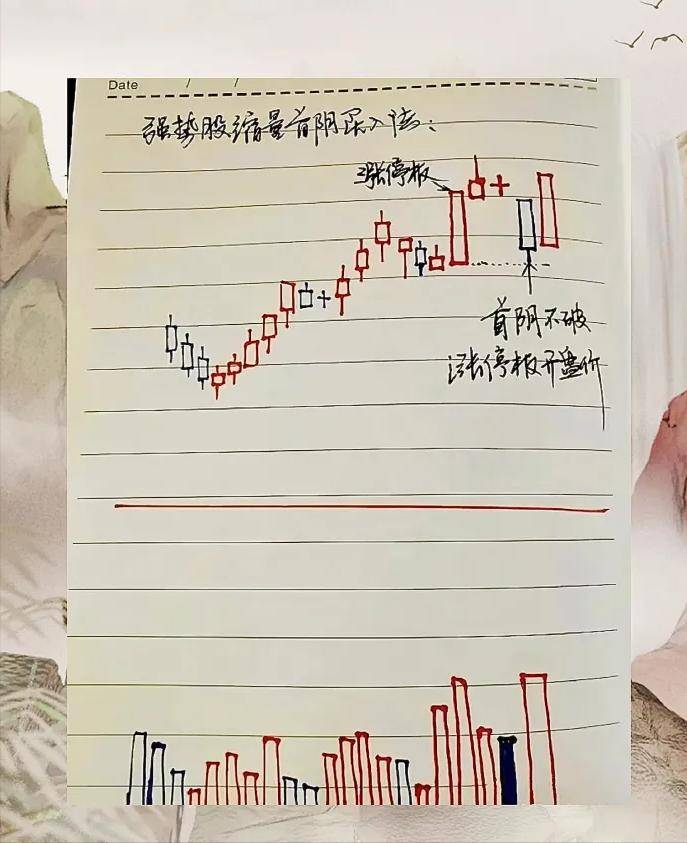 Date / /
强势股缩量首阴买入法：
涨停板
首阴不破
涨停板开盘价